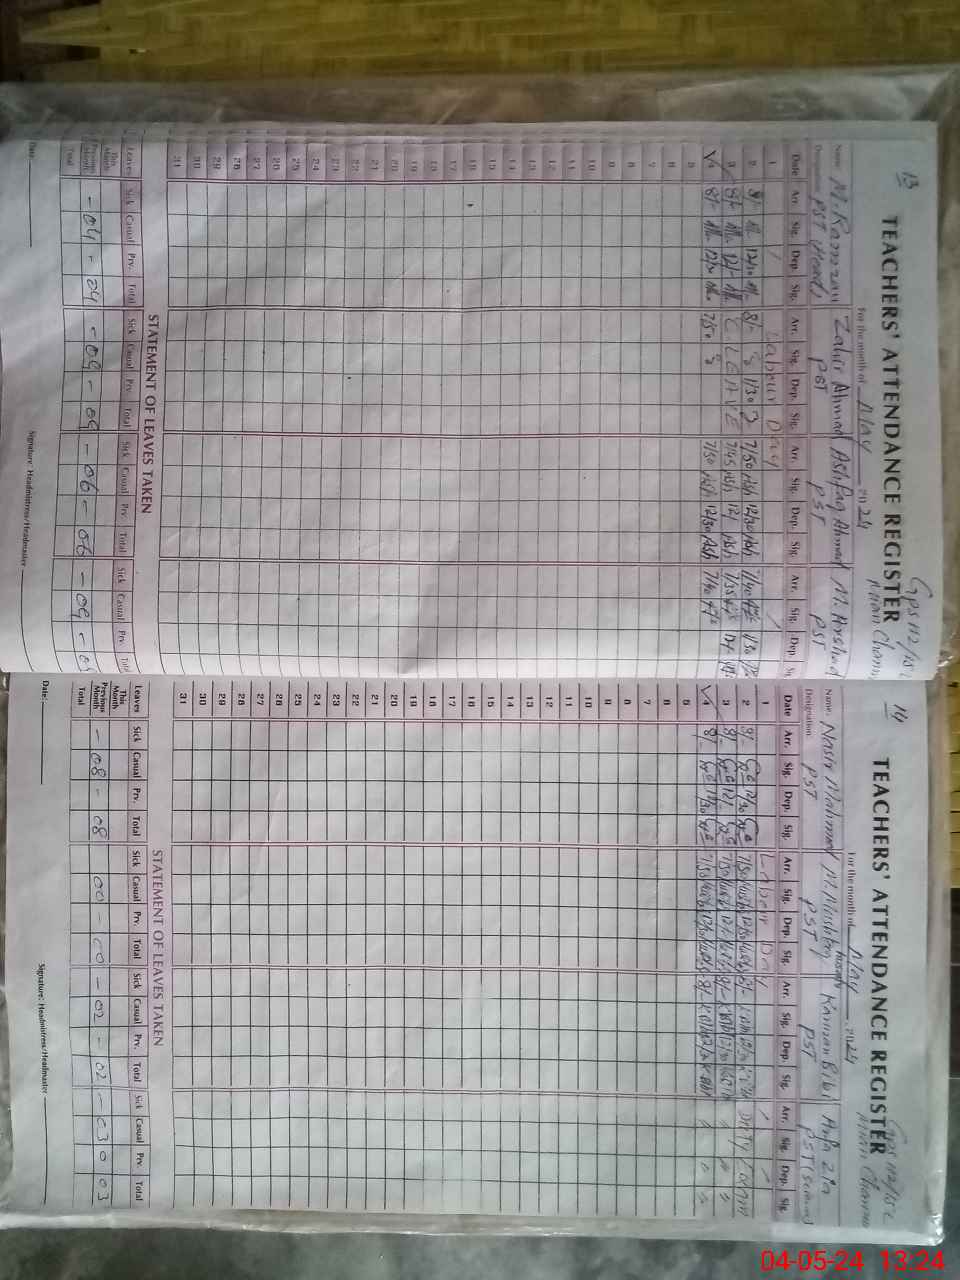 13
TEACHERS' ATTENDANCE REGISTER
GPS 112/15L
Mian Channu
For the month of May 2024
Name: M. Ramzan Zahir Ahmad Ashfaq Ahmad M. Arshad
Designation PST (Head) PST PST PST
Date Arr. Sig. Dep. Sig. Arr. Sig. Dep. Sig. Arr. Sig. Dep. Sig. Arr. Sig. Dep.
1 Labour Day
2 8/- 12/30 8/- 1/30 7/50 Ash 12/30 Ash 7/40 1/30
3 8/- 12/- C. LEAVE 7/45 Ash 12/ Ash 7/35 12/
4 8/- 12/30 7/50 7/50 Ash 12/30 Ash 7/40
5
6
7
8
9
10
11
12
13
14
15
16
17
18
19
20
21
22
23
24
25
26
27
28
29
30
31
STATEMENT OF LEAVES TAKEN
Leaves Sick Casual Prv. Total Sick Casual Prv. Total Sick Casual Prv. Total Sick Casual Prv. Total
This Month
Previous Month - 04 - 04 - 09 - 09 - 06 - 06 - 09 -
Total
Date: Signature: Headmistress/Headmaster
14
TEACHERS' ATTENDANCE REGISTER
GPS 112/15L
Mian Channu
For the month of May 2024
Name: Nasir Mahmood M. Mushtaq Kaniz Bibi
Designation PST PST PST PST
Date Arr. Sig. Dep. Sig. Arr. Sig. Dep. Sig. Arr. Sig. Dep. Sig. Arr. Sig. Dep. Sig.
1 Labour Day
2 8/- 12/30 7/50 12/30 8/- 12/30 DUTY EXAM
3 8/- 12/- 7/50 12/ 8/- 12/30 " "
4 8/- 12/30 7/50 12/30 8/- 12/30 " "
5
6
7
8
9
10
11
12
13
14
15
16
17
18
19
20
21
22
23
24
25
26
27
28
29
30
31
STATEMENT OF LEAVES TAKEN
Leaves Sick Casual Prv. Total Sick Casual Prv. Total Sick Casual Prv. Total Sick Casual Prv. Total
This Month
Previous Month - 08 - 08 00 - 00 - 02 - 02 - 03 0 03
Total
Date: Signature: Headmistress/Headmaster
04-05-24 13:24